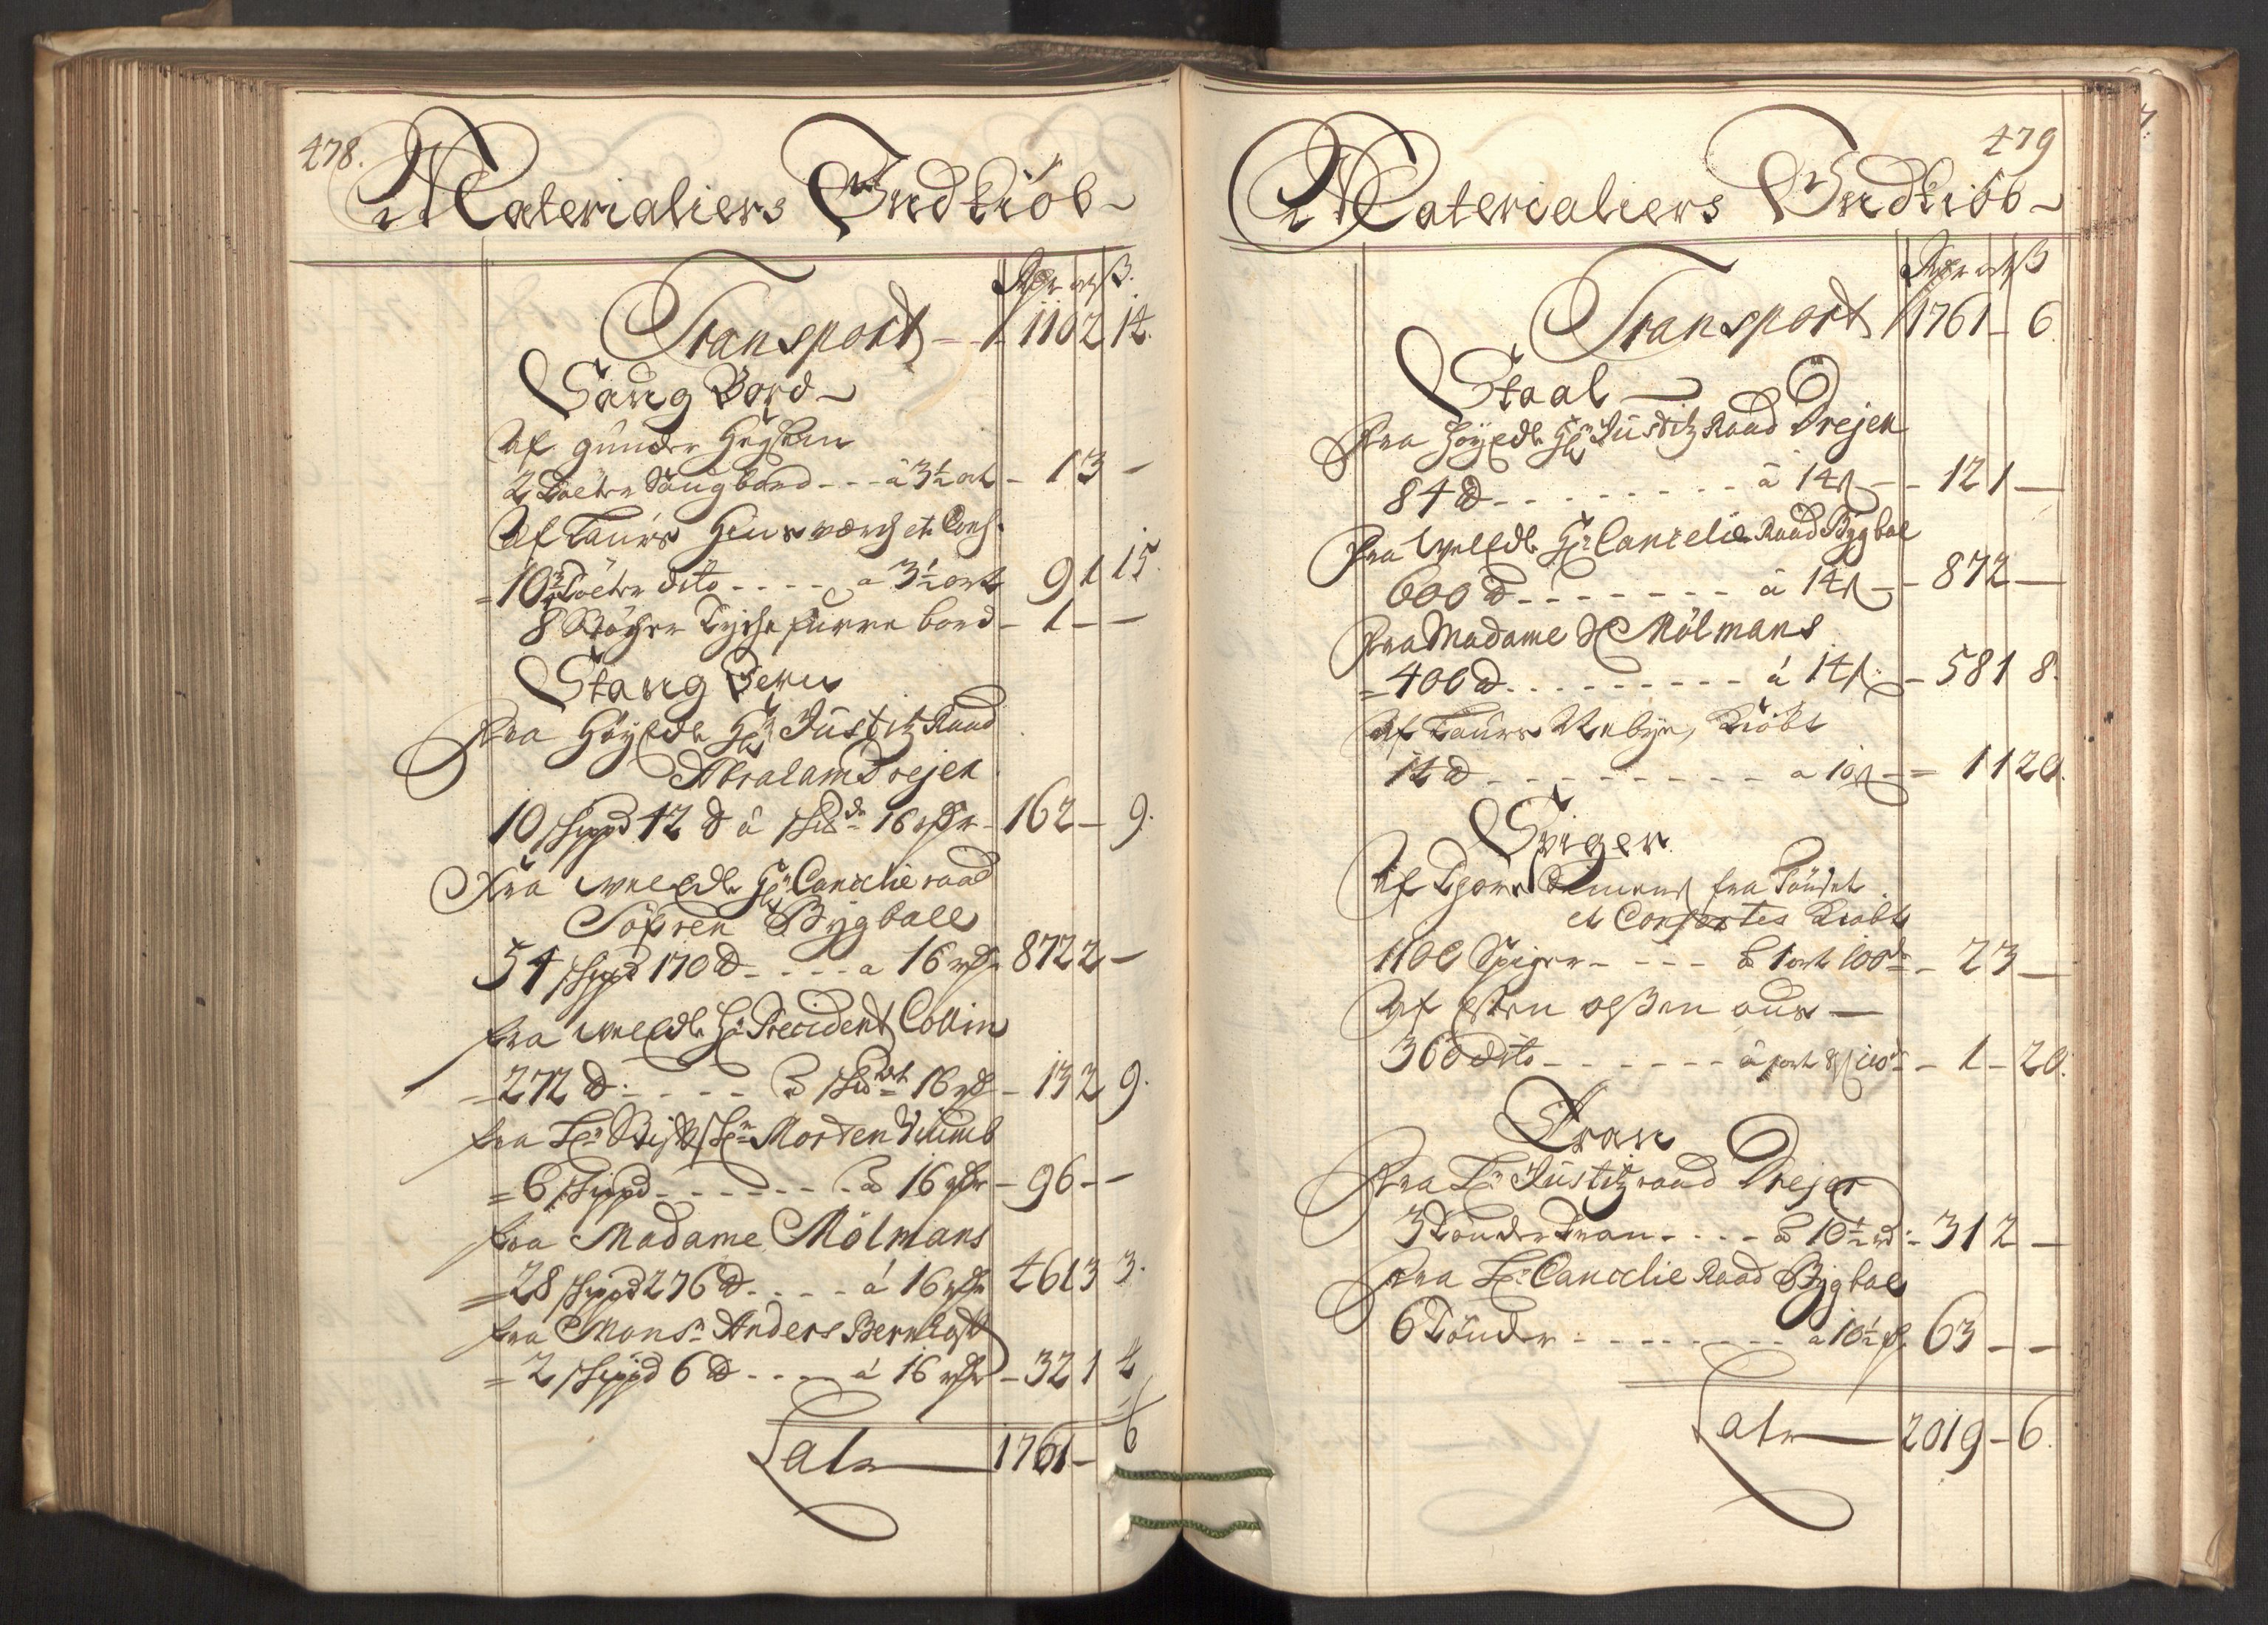 478.
Materialiers Indkiöb
Rdr ort ß.
Transport - 1102 1 2.
Saug Bord
Af Gunder
2 Tolter Saugbord - - - â 3½ ort - 1 3 -
Af Laurs et Cons.
10¾ Tolter dito - - - - a 3½ ort 9 1 15.
8 furre bord - 1 - -
Stang Jern
Fra Høyedle Hr Justitz Raad
Abraham Drejer
10 Skippd 42 ℔ â Skipd 16 rdr - 162 - 9.
Fra Welædle Hr Cancelie raad
Söfren Bygball
54 Skippd 170 ℔ - - - - a 16 rdr 872 2 -
fra welædle Hr Precident Collin
272 ℔ - - - - â Skipd 16 rdr - 13 2 9.
fra Sr Morten
6 Skippd - - - - - - â 16 rdr - 96 - -
fra Madame Mölmans
28 Skippd 276 ℔ - - - - á 16 rdr 461 3 3.
fra Monsr Anders Bernhoft
2 Skippd 6 ℔ - - - - á 16 rdr - 32 1 4
Late 1761 - 6
479
Materialiers Indkiöb
Rdr ort ß
Transport 1761 - 6.
Staal
Fra Höyedle Hr Justitz Raad Drejer
84 ℔ - - - - - - - - â 14 ß - 12 1 -
Fra Welædle Hr Cancelie Raad Bygbal
600 ℔ - - - - - - - â 14 ß - 87 2 -
Fra Madame Mölmans
400 ℔ - - - - - - - - á 14 ß - 58 1 8.
Af Laurs kiöbt
12 ℔ - - - - - - - - a 10 ß - 1 1 20.
Spiger
Af fra Tönset
et Consortes kiöbt
1100 Spiger - - - - â 1 ort 100de - 2 3 -
Af Esten olßen aus
360 dito - - - - - - â 1 ort 8 ß 100 - 1 - 20.
Tran
Fra Hr Justitz raad Drejer
3 Tönder Tran - - - - â 10½ rd - 31 2 -
Fra Hr Cancelie Raad Bygbal
6 Tönder - - - - - - - a 10½ rd 63 - -
Late 2019 - 6.